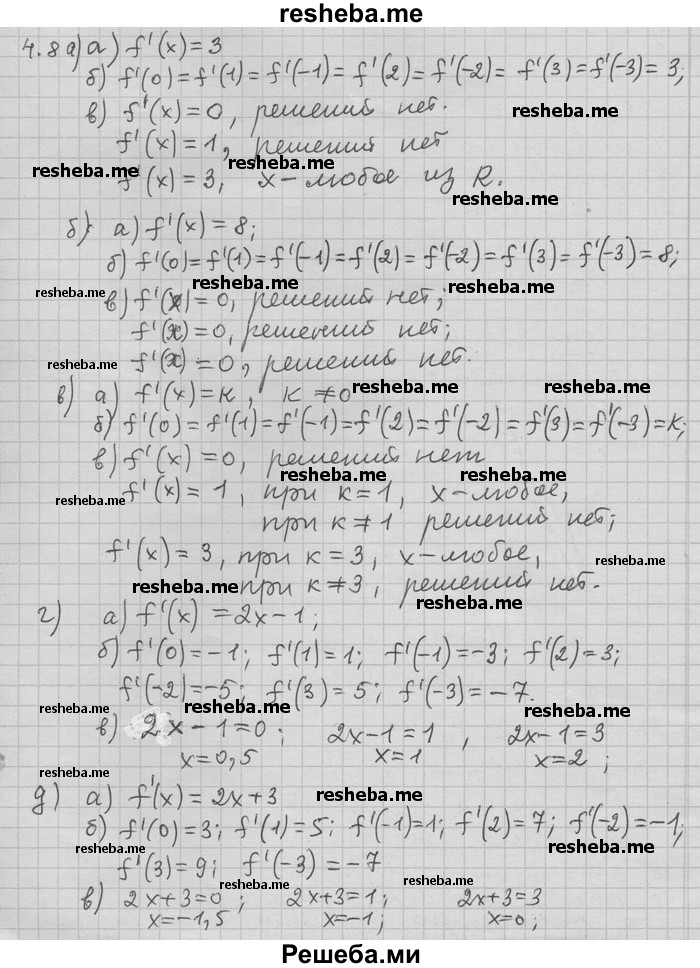 resheba.me
4.8 а) а) f'(x)=3
б) f'(0)=f'(1)=f'(-1)=f'(2)=f'(-2)=f'(3)=f'(-3)=3;
в) f'(x)=0, решений нет. resheba.me
f'(x)=1, решений нет resheba.me
resheba.me resheba.me
f'(x)=3, x-любое из R.
resheba.me
б) а) f'(x)=8;
б) f'(0)=f'(1)=f'(-1)=f'(2)=f'(-2)=f'(3)=f'(-3)=8;
resheba.me resheba.me
resheba.me в) f'(x)=0, решений нет;
f'(x)=0, решений нет; resheba.me
resheba.me f'(x)=0, решений нет.
в) а) f'(x)=к, к≠0 resheba.me resheba.me
б) f'(0)=f'(1)=f'(-1)=f'(2)=f'(-2)=f'(3)=f'(-3)=к;
resheba.me
в) f'(x)=0, решений нет resheba.me
resheba.me resheba.me
f'(x)=1, при к=1, x-любое,
при к≠1 решений нет;
f'(x)=3, при к=3, x-любое, resheba.me
resheba.me при к≠3, решений нет.
resheba.me
г) а) f'(x)=2x-1;
б) f'(0)=-1; f'(1)=1; f'(-1)=-3; f'(2)=3;
f'(-2)=-5; f'(3)=5; f'(-3)=-7.
resheba.me resheba.me resheba.me
в) 2x-1=0; 2x-1=1, 2x-1=3
x=0,5 x=1 x=2;
resheba.me
д) а) f'(x)=2x+3 resheba.me
б) f'(0)=3; f'(1)=5; f'(-1)=1; f'(2)=7; f'(-2)=-1;
resheba.me
f'(3)=9; f'(-3)=-7
resheba.me resheba.me
в) 2x+3=0; 2x+3=1; 2x+3=3
x=-1,5 x=-1; x=0;
resheba.me resheba.me resheba.me
Решеба.ми